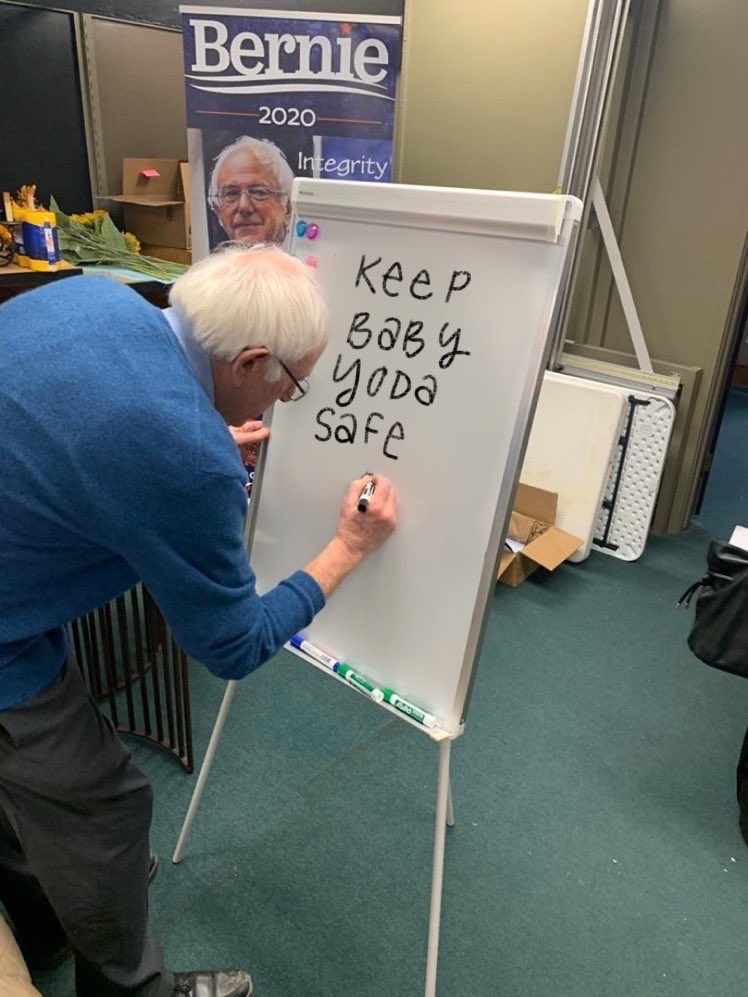 Bernie
2020
Integrity
Keep
Baby
Yoda
Safe